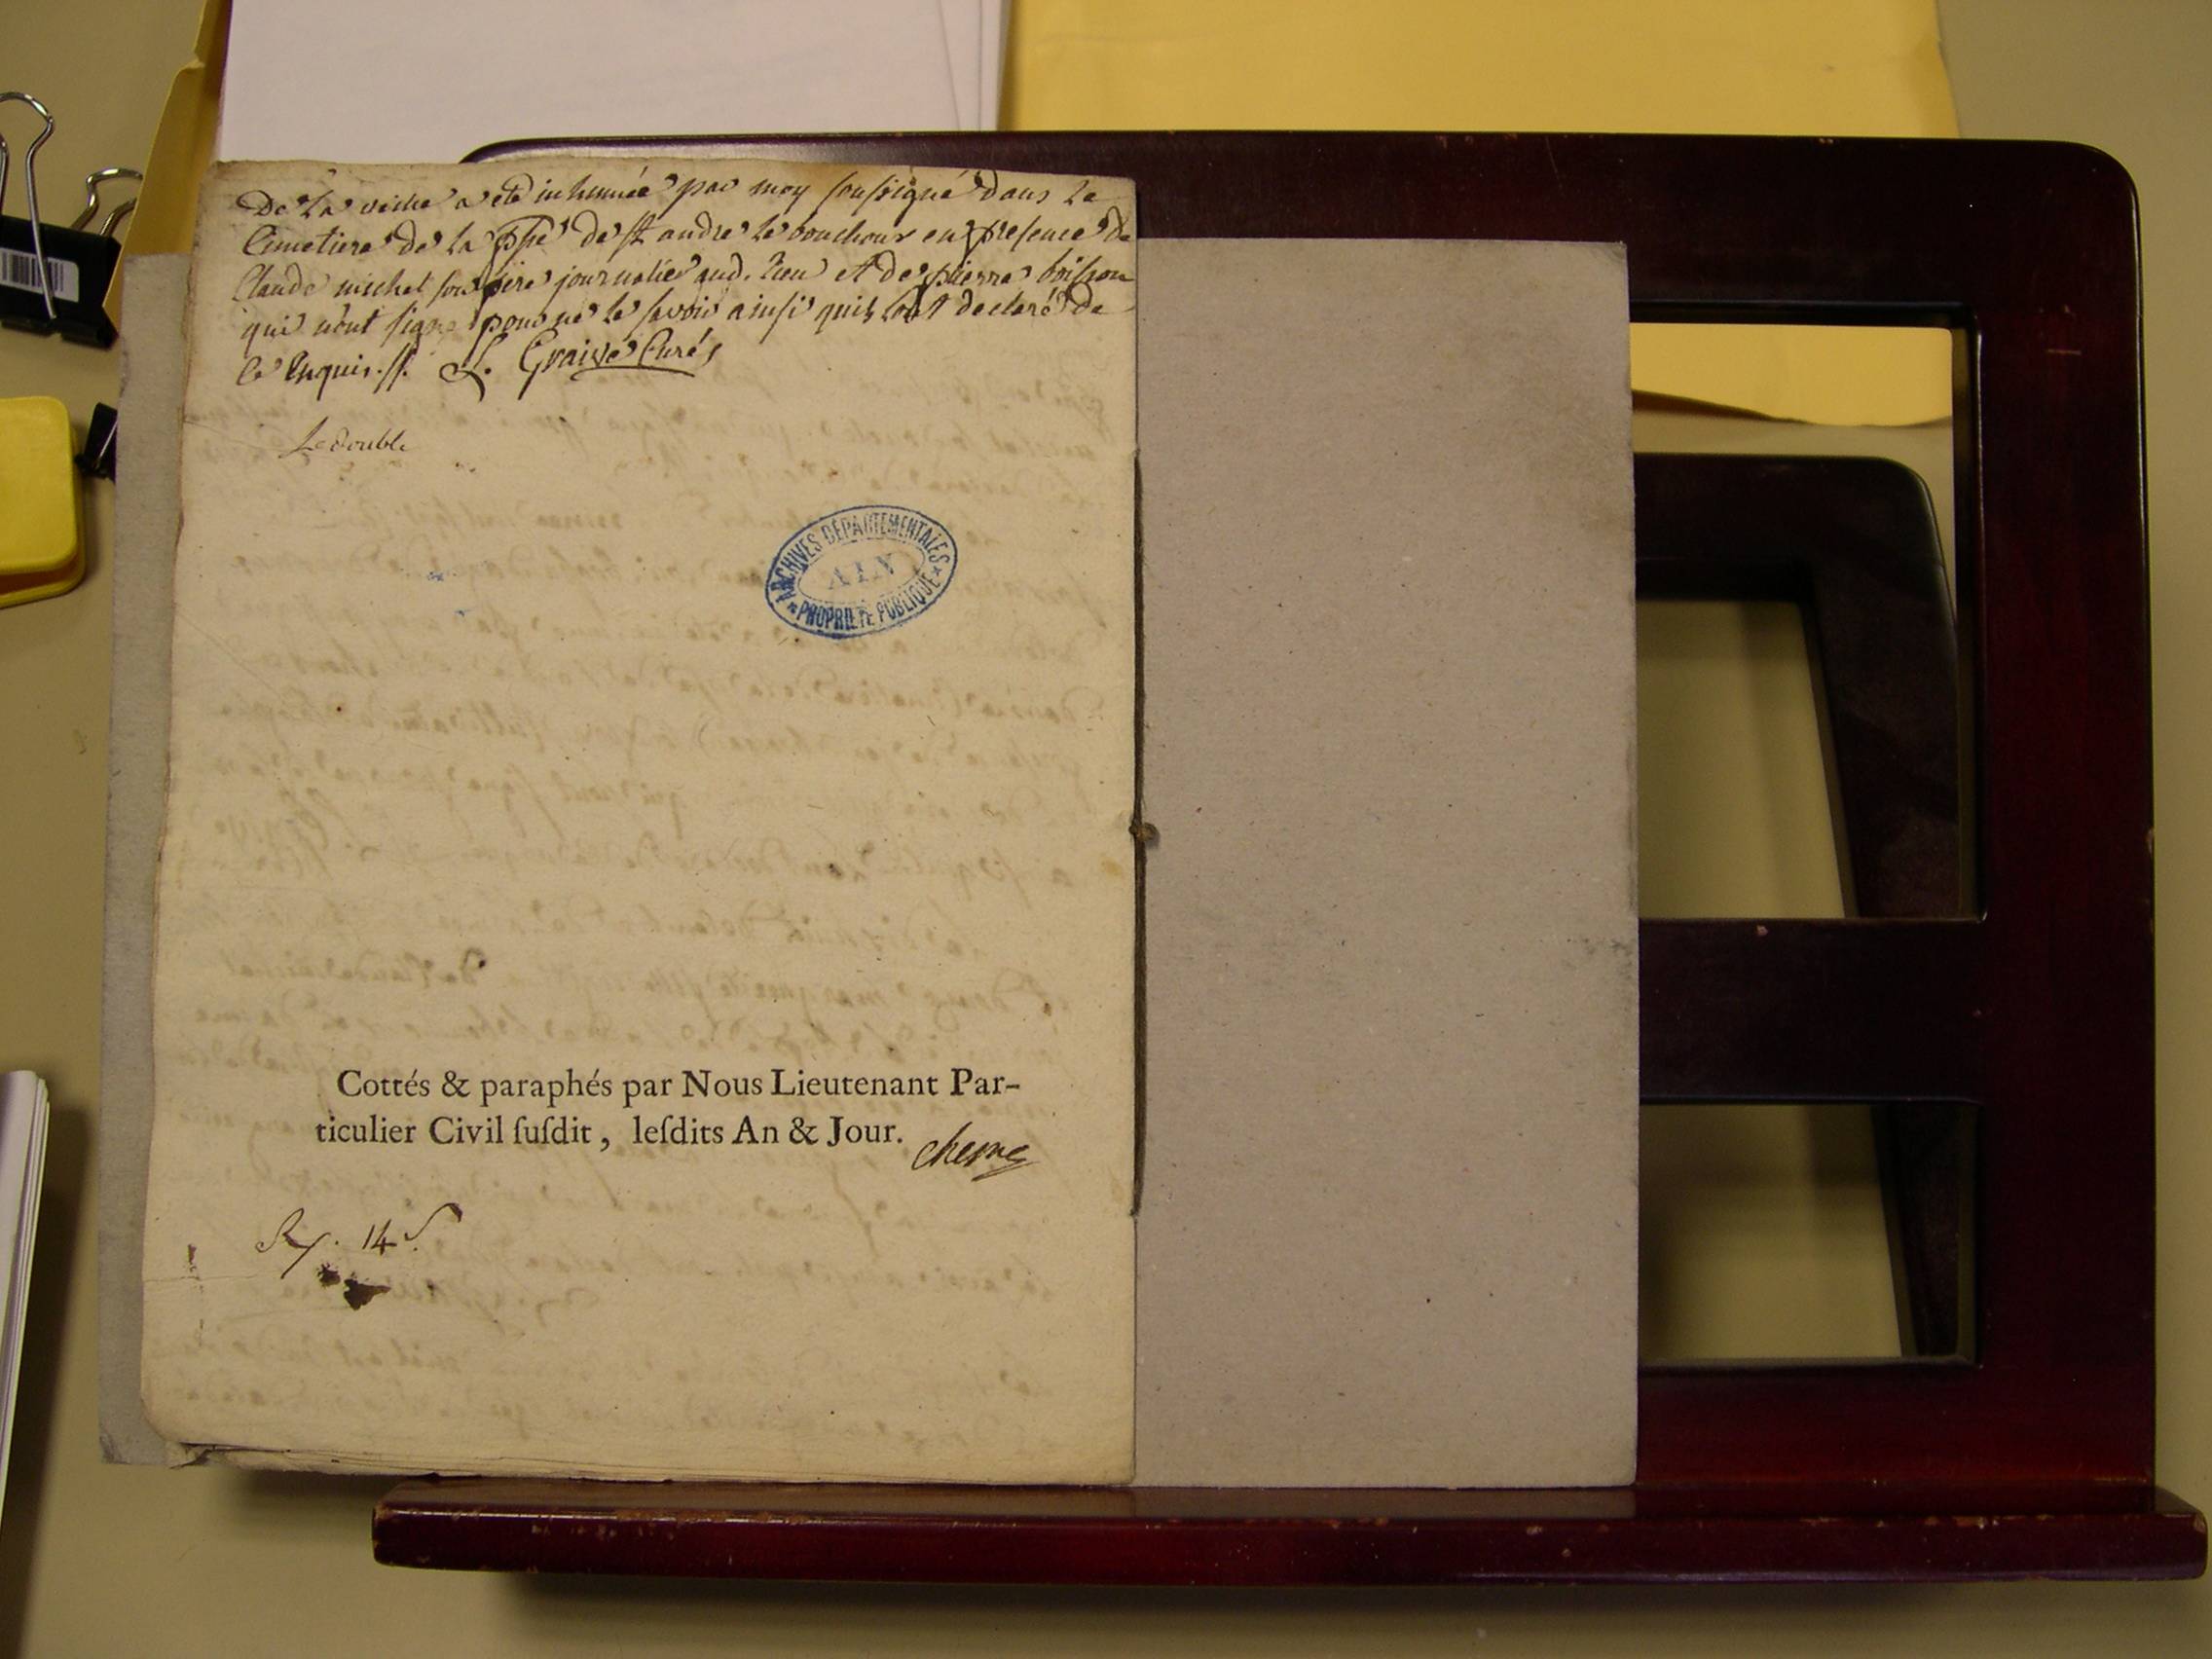 De La veille a été inhumée par moy soussigné dans Le
Cimetiere de La psse de st andre le bouchoux en presence de
Claude michel son pere journalier aud. lieu et de pierre boisson
qui n'ont signé pour ne le savoir ainsi quils l'ont declaré de
ce Enquis ./. L. Graive Curé
Le double
ARCHIVES DÉPARTEMENTALES
AIN
PROPRIÉTÉ PUBLIQUE
Cottés & paraphés par Nous Lieutenant Par-
ticulier Civil ſuſdit, leſdits An & Jour.
14 s.